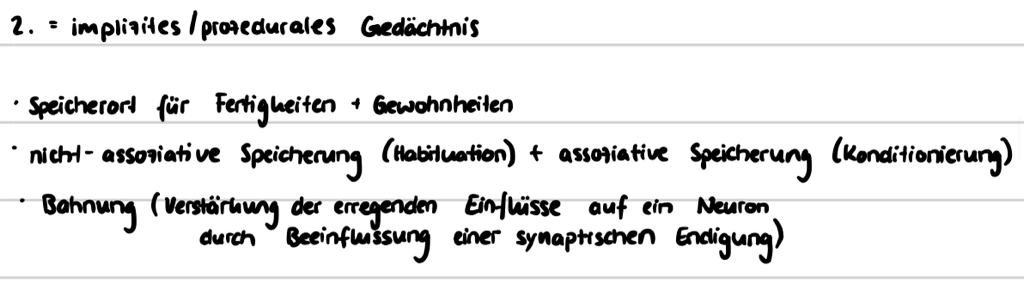 2. = implizites/prozedurales Gedächtnis
· Speicherort für Fertigkeiten + Gewohnheiten
· nicht-assoziative Speicherung (Habituation) + assoziative Speicherung (Konditionierung)
· Bahnung (Verstärkung der erregenden Einflüsse auf ein Neuron
durch Beeinflussung einer synaptischen Endigung)